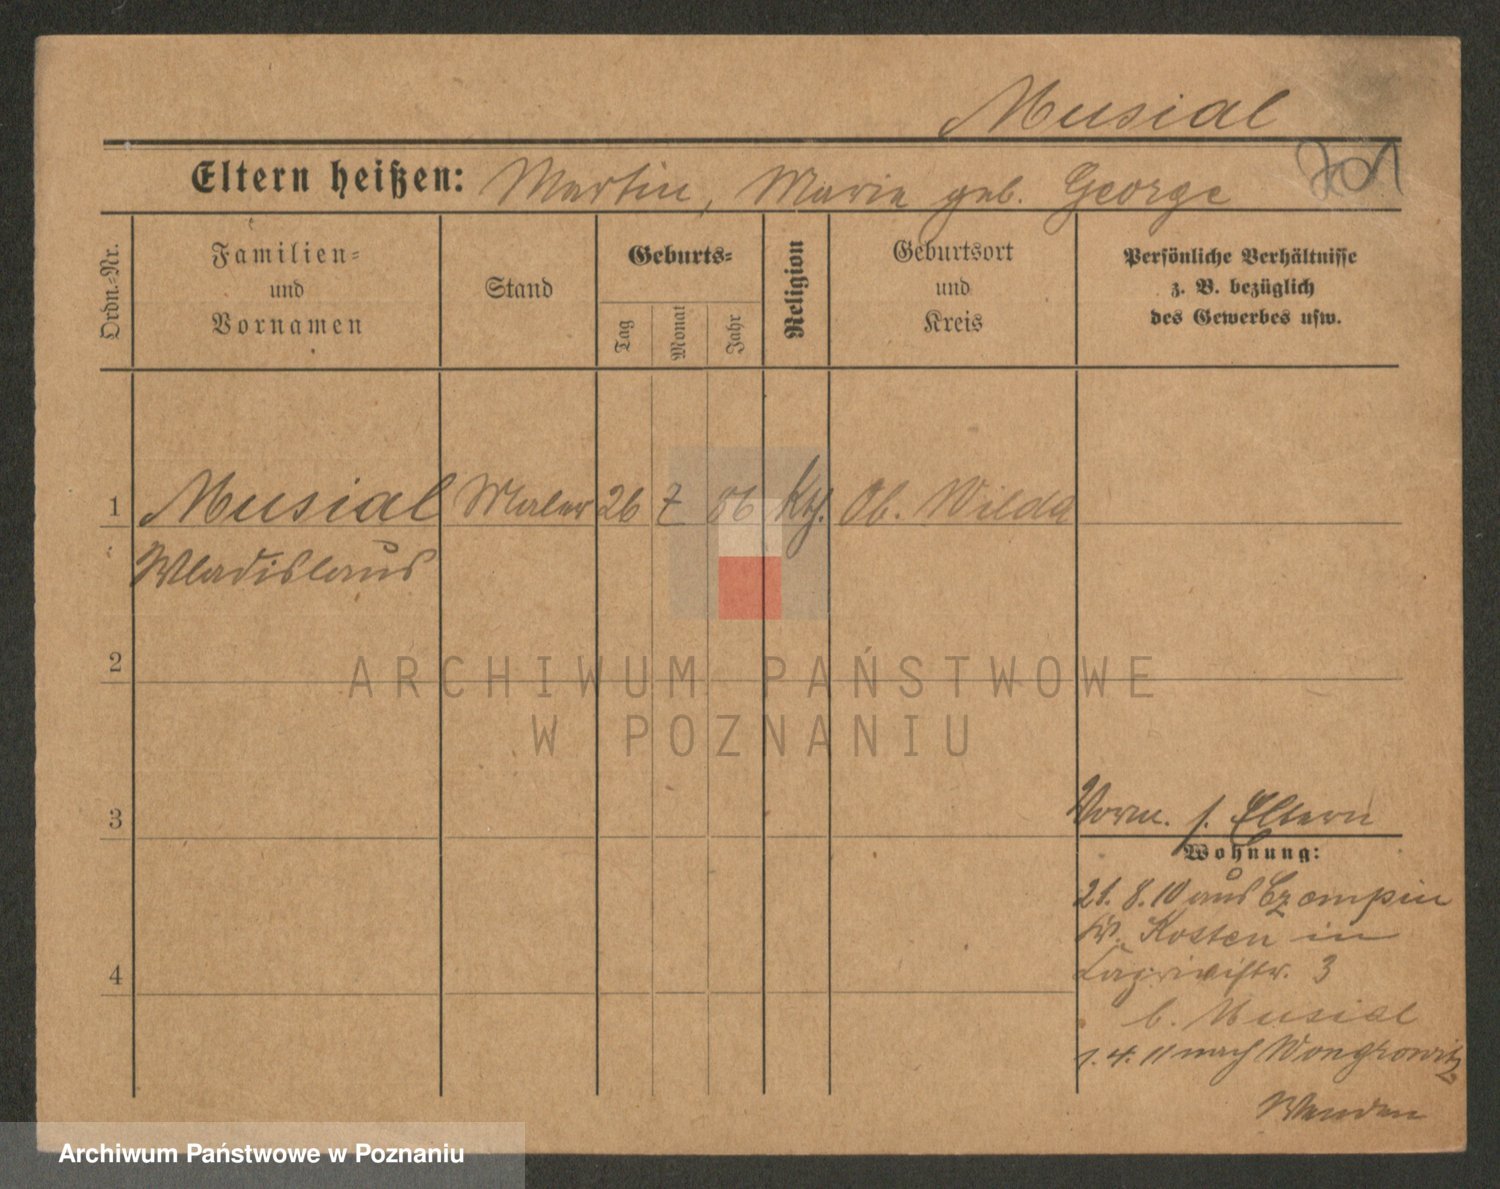 Musial
Eltern heißen: Martin, Marie geb. George
Ordn.-Nr.
Familien-
und
Vornamen
Stand
Geburts-
Tag
Monat
Jahr
Religion
Geburtsort
und
Kreis
Persönliche Verhältnisse
z. B. bezüglich
des Gewerbes usw.
1 Musial Maler 26 Kth. Ob. Wilda
Wladislaus
2
ARCHIWUM PAŃSTWOWE
W POZNANIU
3
Vorm. s. Eltern
Wohnung:
21. 8. 10 aus Czempin
Kr. Kosten in
Caprivistr. 3
b. Musial
4
1. 4. 11 nach Wongrowitz
Wenden
Archiwum Państwowe w Poznaniu